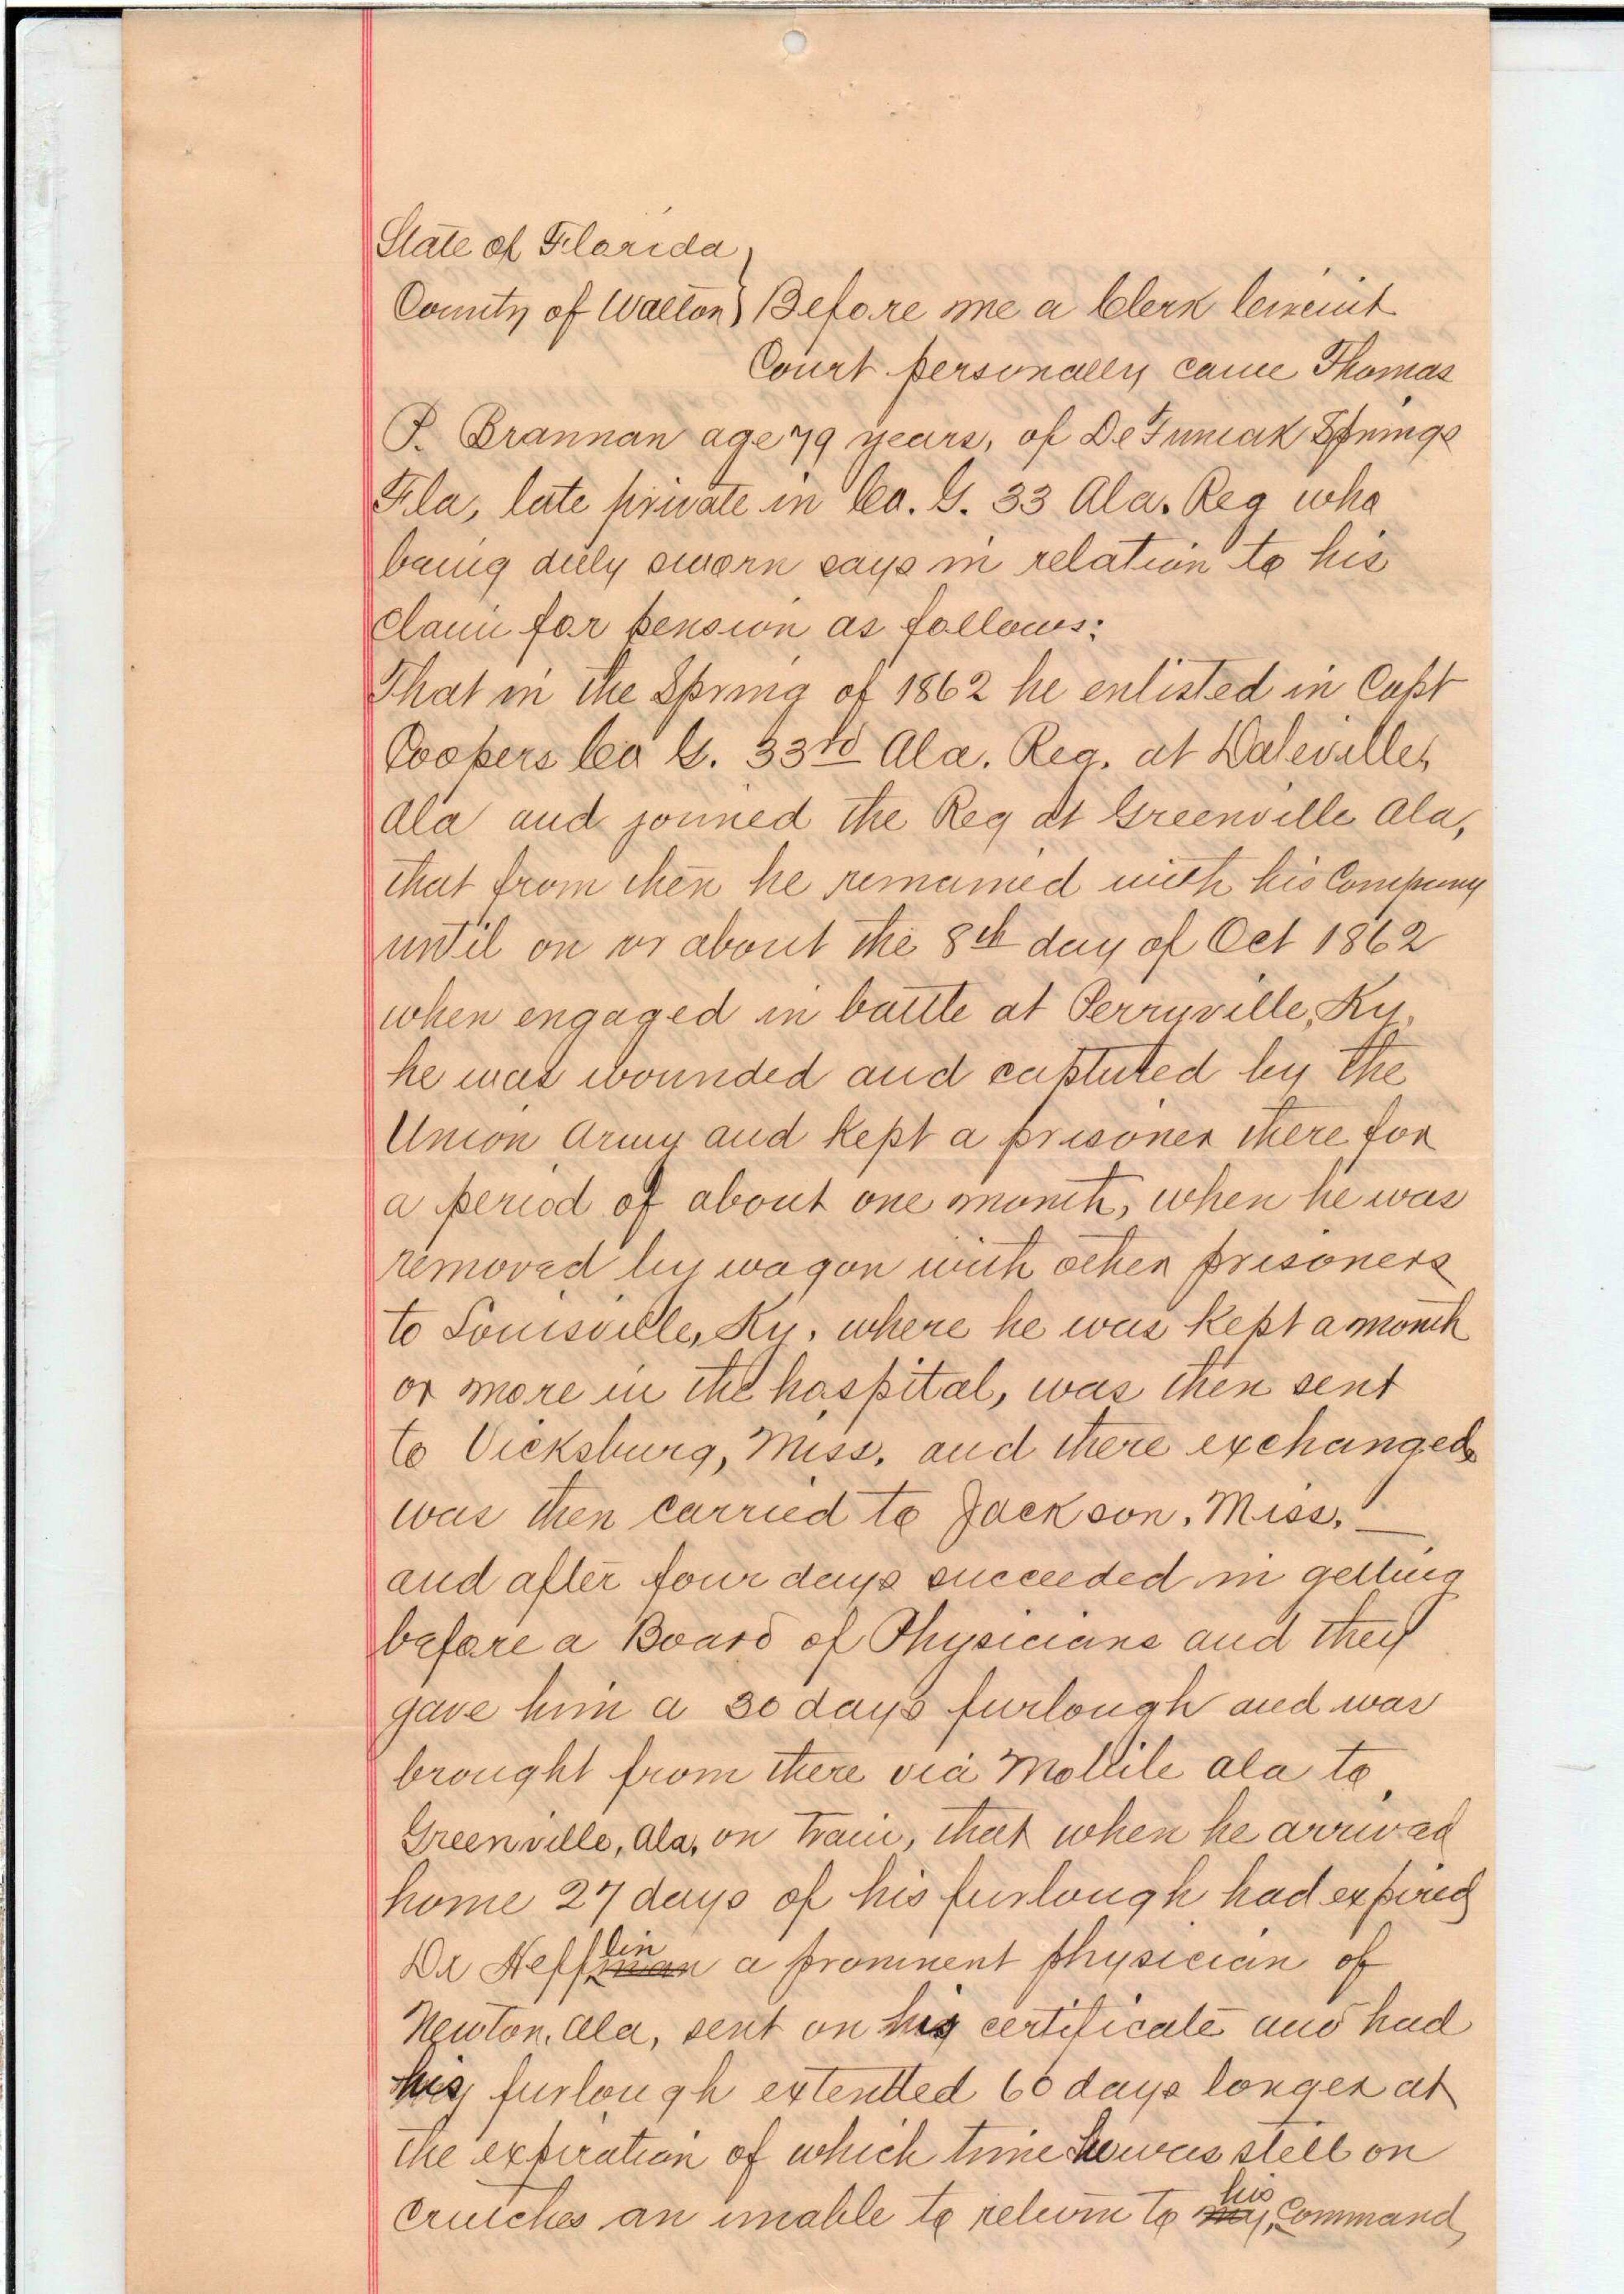 State of Florida }
County of Walton } Before me a Clerk Circuit
Court personally came Thomas
P. Brannan age 79 years, of De Funiak Springs
Fla, late private in Co. G. 33 Ala. Reg who
being duly sworn says in relation to his
claim for pension as follows:
That in the Spring of 1862 he enlisted in Capt
Coopers Co G. 33rd Ala. Reg. at Daleville,
Ala and joined the Reg at Greenville Ala,
that from then he remained with his Company
until on or about the 8th day of Oct 1862
when engaged in battle at Perryville, Ky.
he was wounded and captured by the
Union Army and kept a prisoner there for
a period of about one month, when he was
removed by wagon with other prisoners
to Louisville, Ky. where he was kept a month
or more in the hospital, was then sent
to Vicksburg, Miss. and there exchanged,
was then carried to Jackson, Miss. —
and after four days succeeded in getting
before a Board of Physicians and they
gave him a 30 days furlough and was
brought from there via Mobile Ala to
Greenville, Ala, on train, that when he arrived
home 27 days of his furlough had expired
Dr Hefflin a prominent physician of
Newton, Ala, sent on his certificate and had
his furlough extended 60 days longer at
the expiration of which time he was still on
crutches an unable to return to his command,